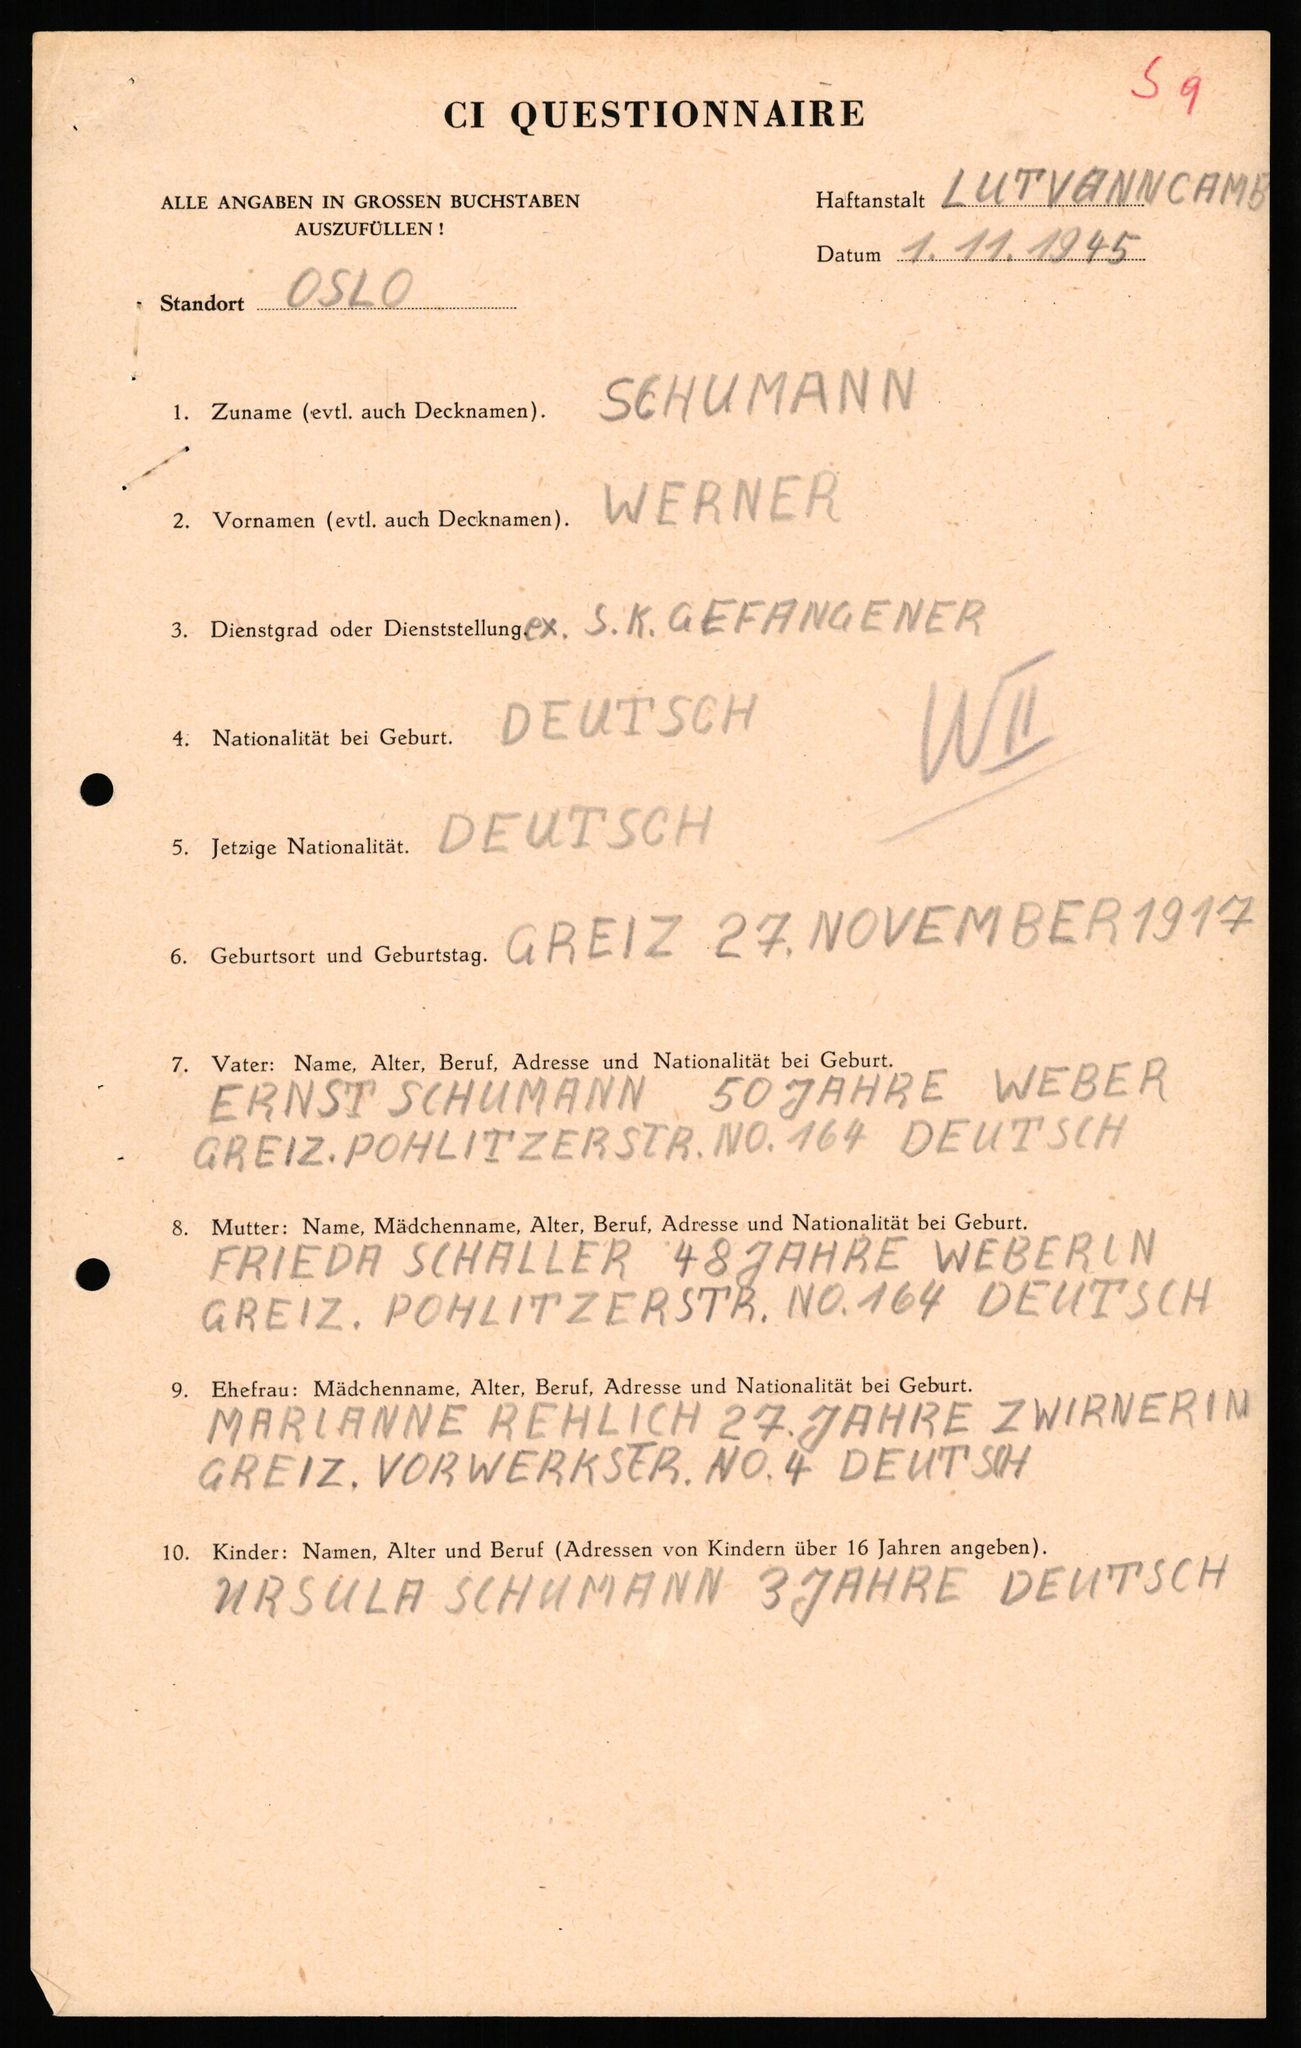 S 9
CI QUESTIONNAIRE
ALLE ANGABEN IN GROSSEN BUCHSTABEN
AUSZUFÜLLEN !
Haftanstalt LUTVANNCAMB
Datum 1. 11. 1945
Standort OSLO
1. Zuname (evtl. auch Decknamen). SCHUMANN
2. Vornamen (evtl. auch Decknamen). WERNER
3. Dienstgrad oder Dienststellung. ex. S.K. GEFANGENER
4. Nationalität bei Geburt. DEUTSCH
W II
5. Jetzige Nationalität. DEUTSCH
6. Geburtsort und Geburtstag. GREIZ 27. NOVEMBER 1917
7. Vater: Name, Alter, Beruf, Adresse und Nationalität bei Geburt.
ERNST SCHUMANN 50 JAHRE WEBER
GREIZ. POHLITZERSTR. NO. 164 DEUTSCH
8. Mutter: Name, Mädchenname, Alter, Beruf, Adresse und Nationalität bei Geburt.
FRIEDA SCHALLER 48 JAHRE WEBERIN
GREIZ. POHLITZERSTR. NO. 164 DEUTSCH
9. Ehefrau: Mädchenname, Alter, Beruf, Adresse und Nationalität bei Geburt.
MARIANNE REHLICH 27. JAHRE ZWIRNERIN
GREIZ. VORWERKSTR. NO. 4 DEUTSCH
10. Kinder: Namen, Alter und Beruf (Adressen von Kindern über 16 Jahren angeben).
URSULA SCHUMANN 3 JAHRE DEUTSCH